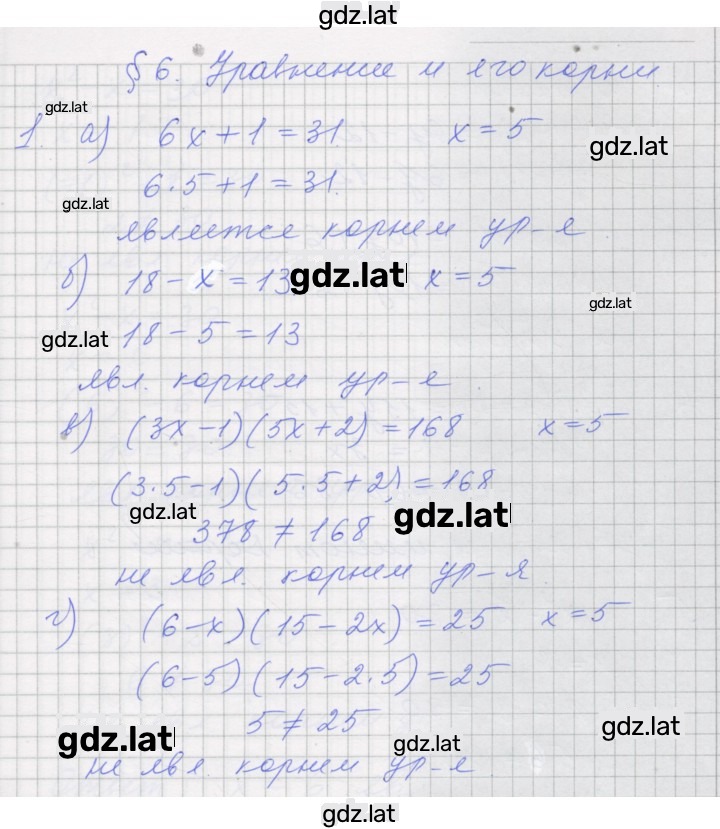 gdz.lat
§6. Уравнение и его корни
gdz.lat
1. а) 6x+1=31 x=5
gdz.lat
6·5+1=31.
gdz.lat
является корнем ур-е.
б) 18-x=13 gdz.lat x=5
gdz.lat
gdz.lat 18-5=13
явл. корнем ур-е
в) (3x-1)(5x+2)=168 x=5
(3·5-1)(5·5+2)=168
gdz.lat gdz.lat
378≠168
не явл. корнем ур-я
г) (6-x)(15-2x)=25 x=5
(6-5)(15-2·5)=25
5≠25
gdz.lat gdz.lat gdz.lat
не явл. корнем ур-е
gdz.lat